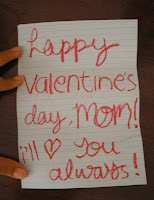 happy
valentine's
day, Mom!
i'll ♡ you
always!